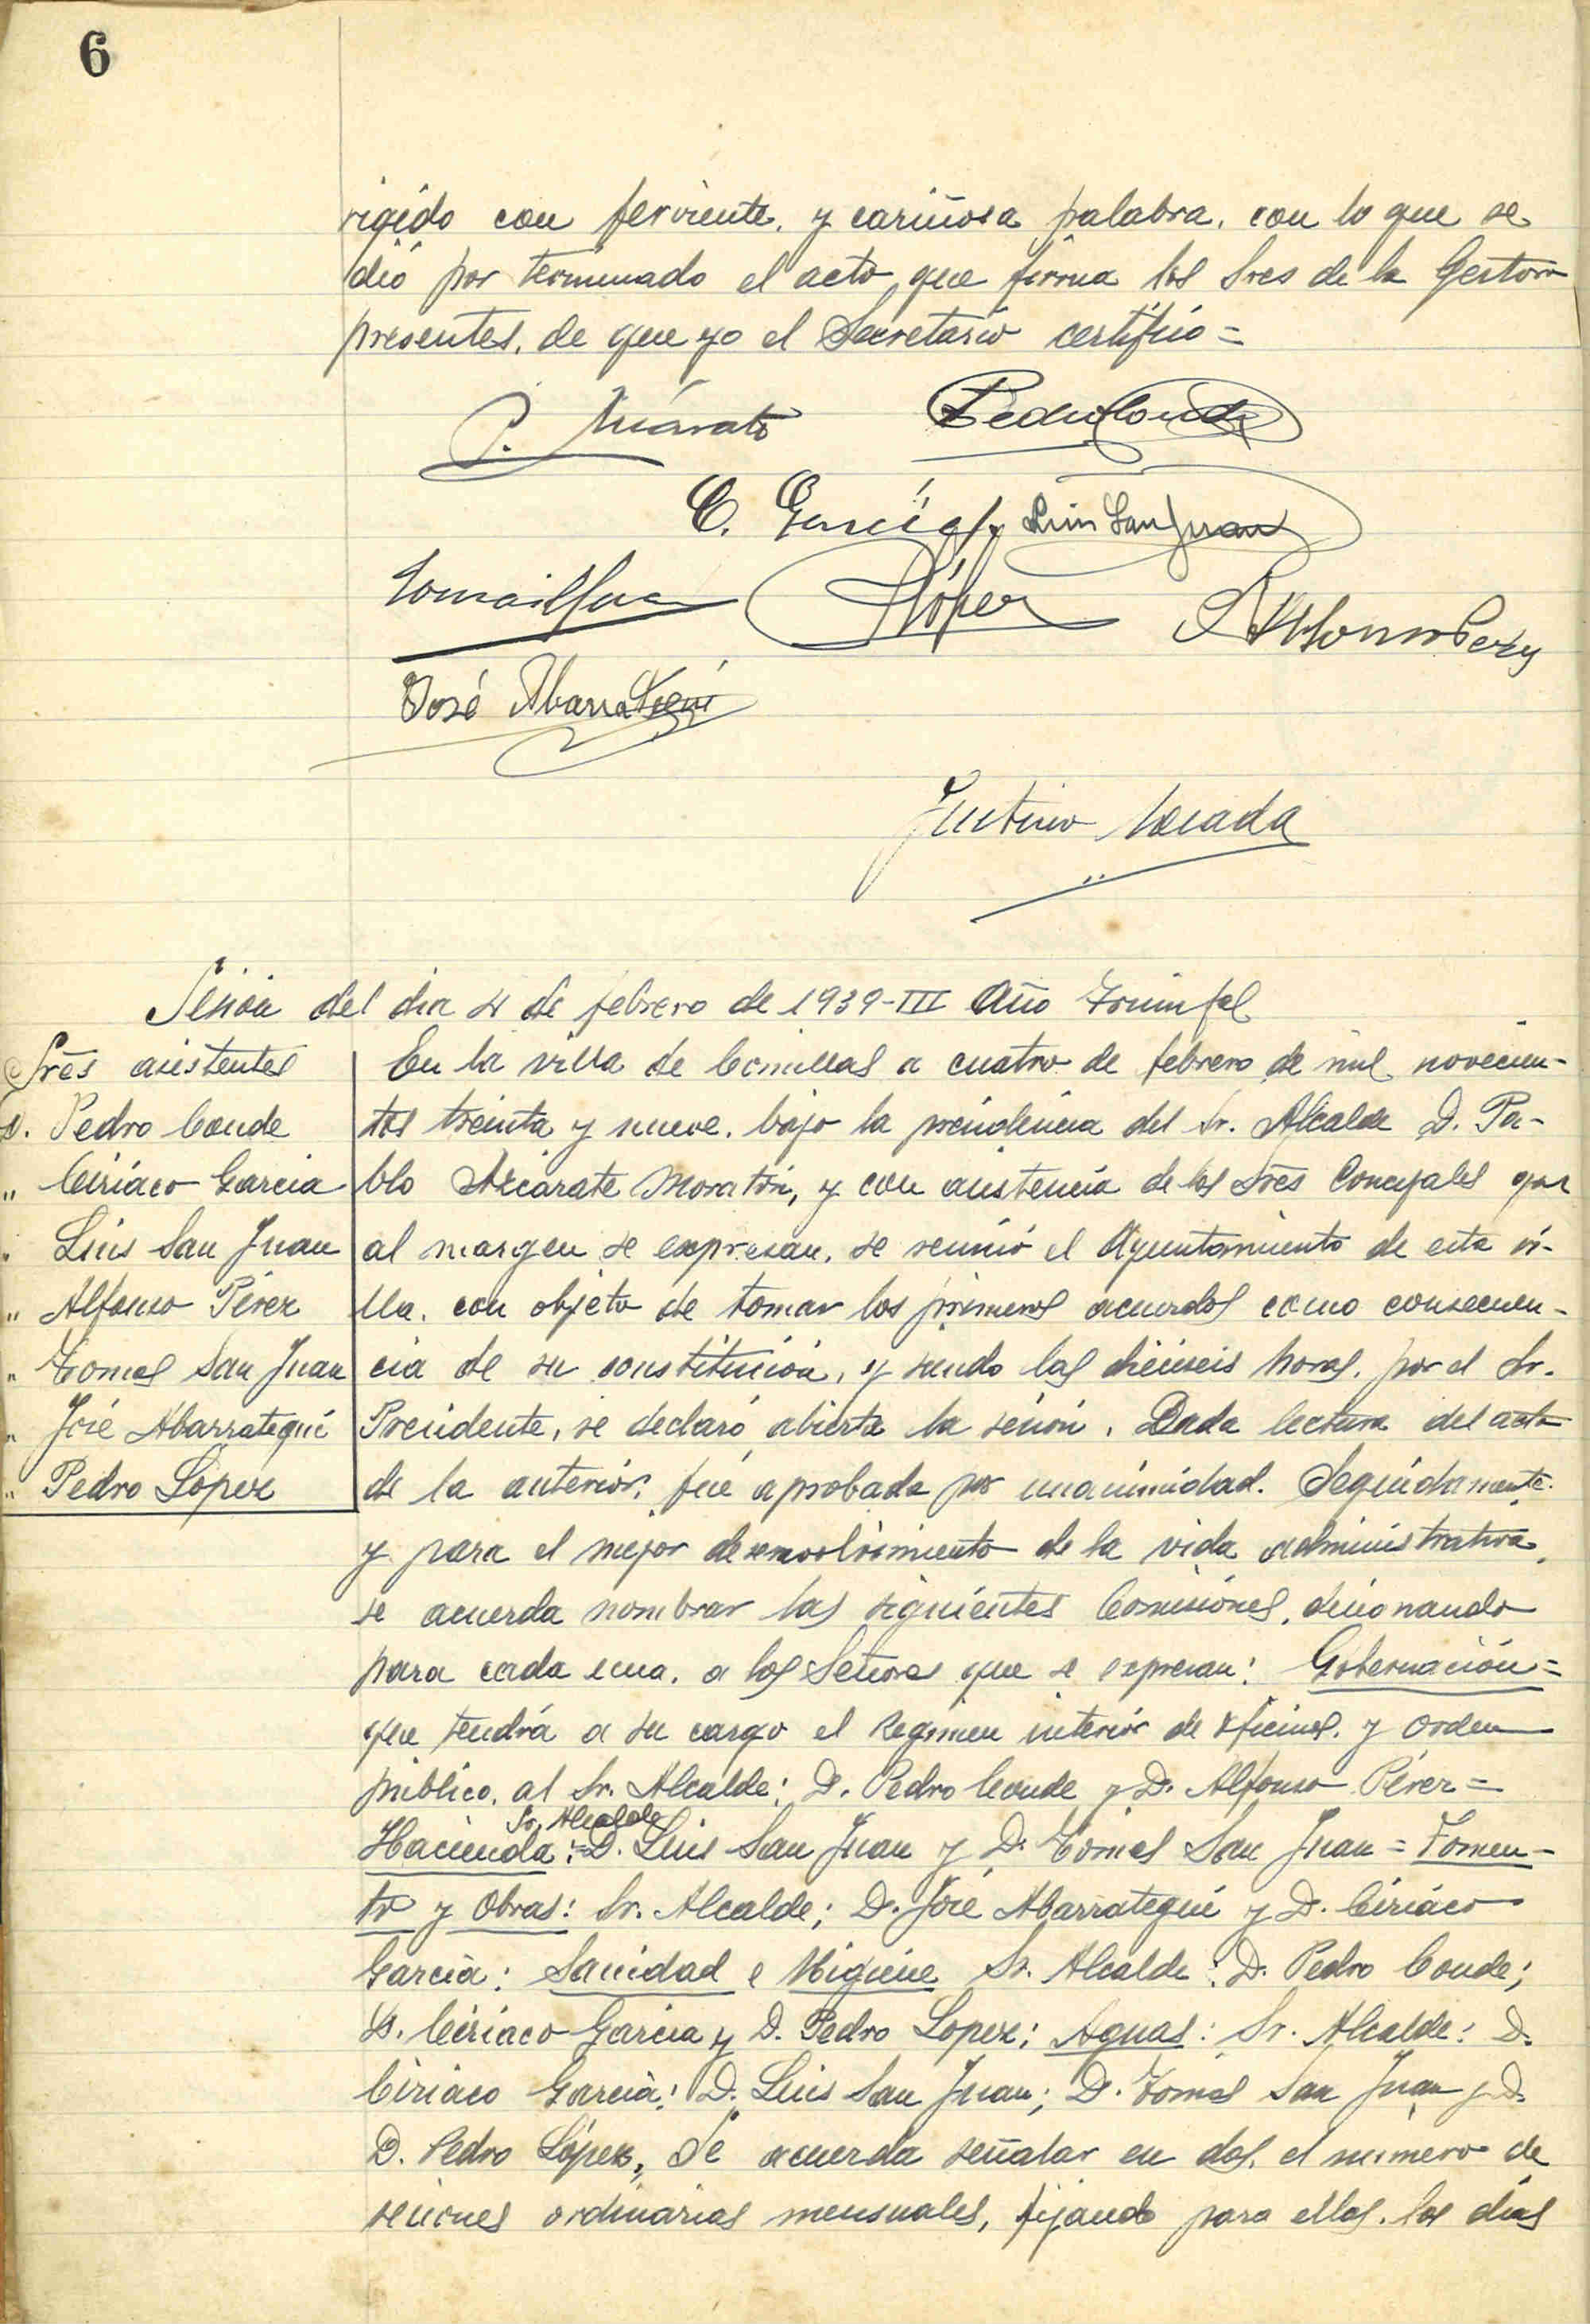 6
rigido con ferviente, y cariñosa palabra, con lo que se
dió por terminado el acto, que firma los Sres de la Gestora
presentes, de que yo el Secretario certifico =
Pedro Conde
C. García Luis San Juan
López Alfonso Perez
José Abarrategui
Justino
Sesión del dia 4 de febrero de 1939-III Año Triunfal
Sres asistentes
D. Pedro Conde
" Ciriaco Garcia
" Luis San Juan
" Alfonso Pérez
" Tomas San Juan
" José Abarrategui
" Pedro López
En la villa de Comillas a cuatro de febrero de mil novecien-
tos treinta y nueve, bajo la presidencia del Sr. Alcalde D. Pa-
blo Azcárate Moratón, y con asistencia de los Sres Concejales que
al margen se expresan, se reunió el Ayuntamiento de esta vi-
lla, con objeto de tomar los primeros acuerdos como consecuen-
cia de su constitución, y siendo las dieciseis horas, por el Sr.
Presidente, se declaró abierta la sesión. Dada lectura del acta
de la anterior, fué aprobada por unanimidad. Seguidamente
y para el mejor desenvolvimiento de la vida administrativa,
se acuerda nombrar las siguientes Comisiones, desionando
para cada una, a los Señores que se expresan: Gobernación =
que tendrá a su cargo el Regimen interior de oficinas, y orden
público, al Sr. Alcalde; D. Pedro Conde y D. Alfonso Pérez =
Sr. Alcalde
Hacienda: D. Luis San Juan y D. Tomas San Juan = Fomen-
to y Obras: Sr. Alcalde; D. José Abarrategui y D. Ciriaco
García: Sanidad e Higiene Sr. Alcalde: D. Pedro Conde;
D. Ciriaco Garcia y D. Pedro Lopez; Aguas: Sr. Alcalde: D.
Ciriaco García; D. Luis San Juan; D. Tomás San Juan y D.
D. Pedro López. Se acuerda señalar en dos, el número de
sesiones ordinarias mensuales, fijando para ellas, los días